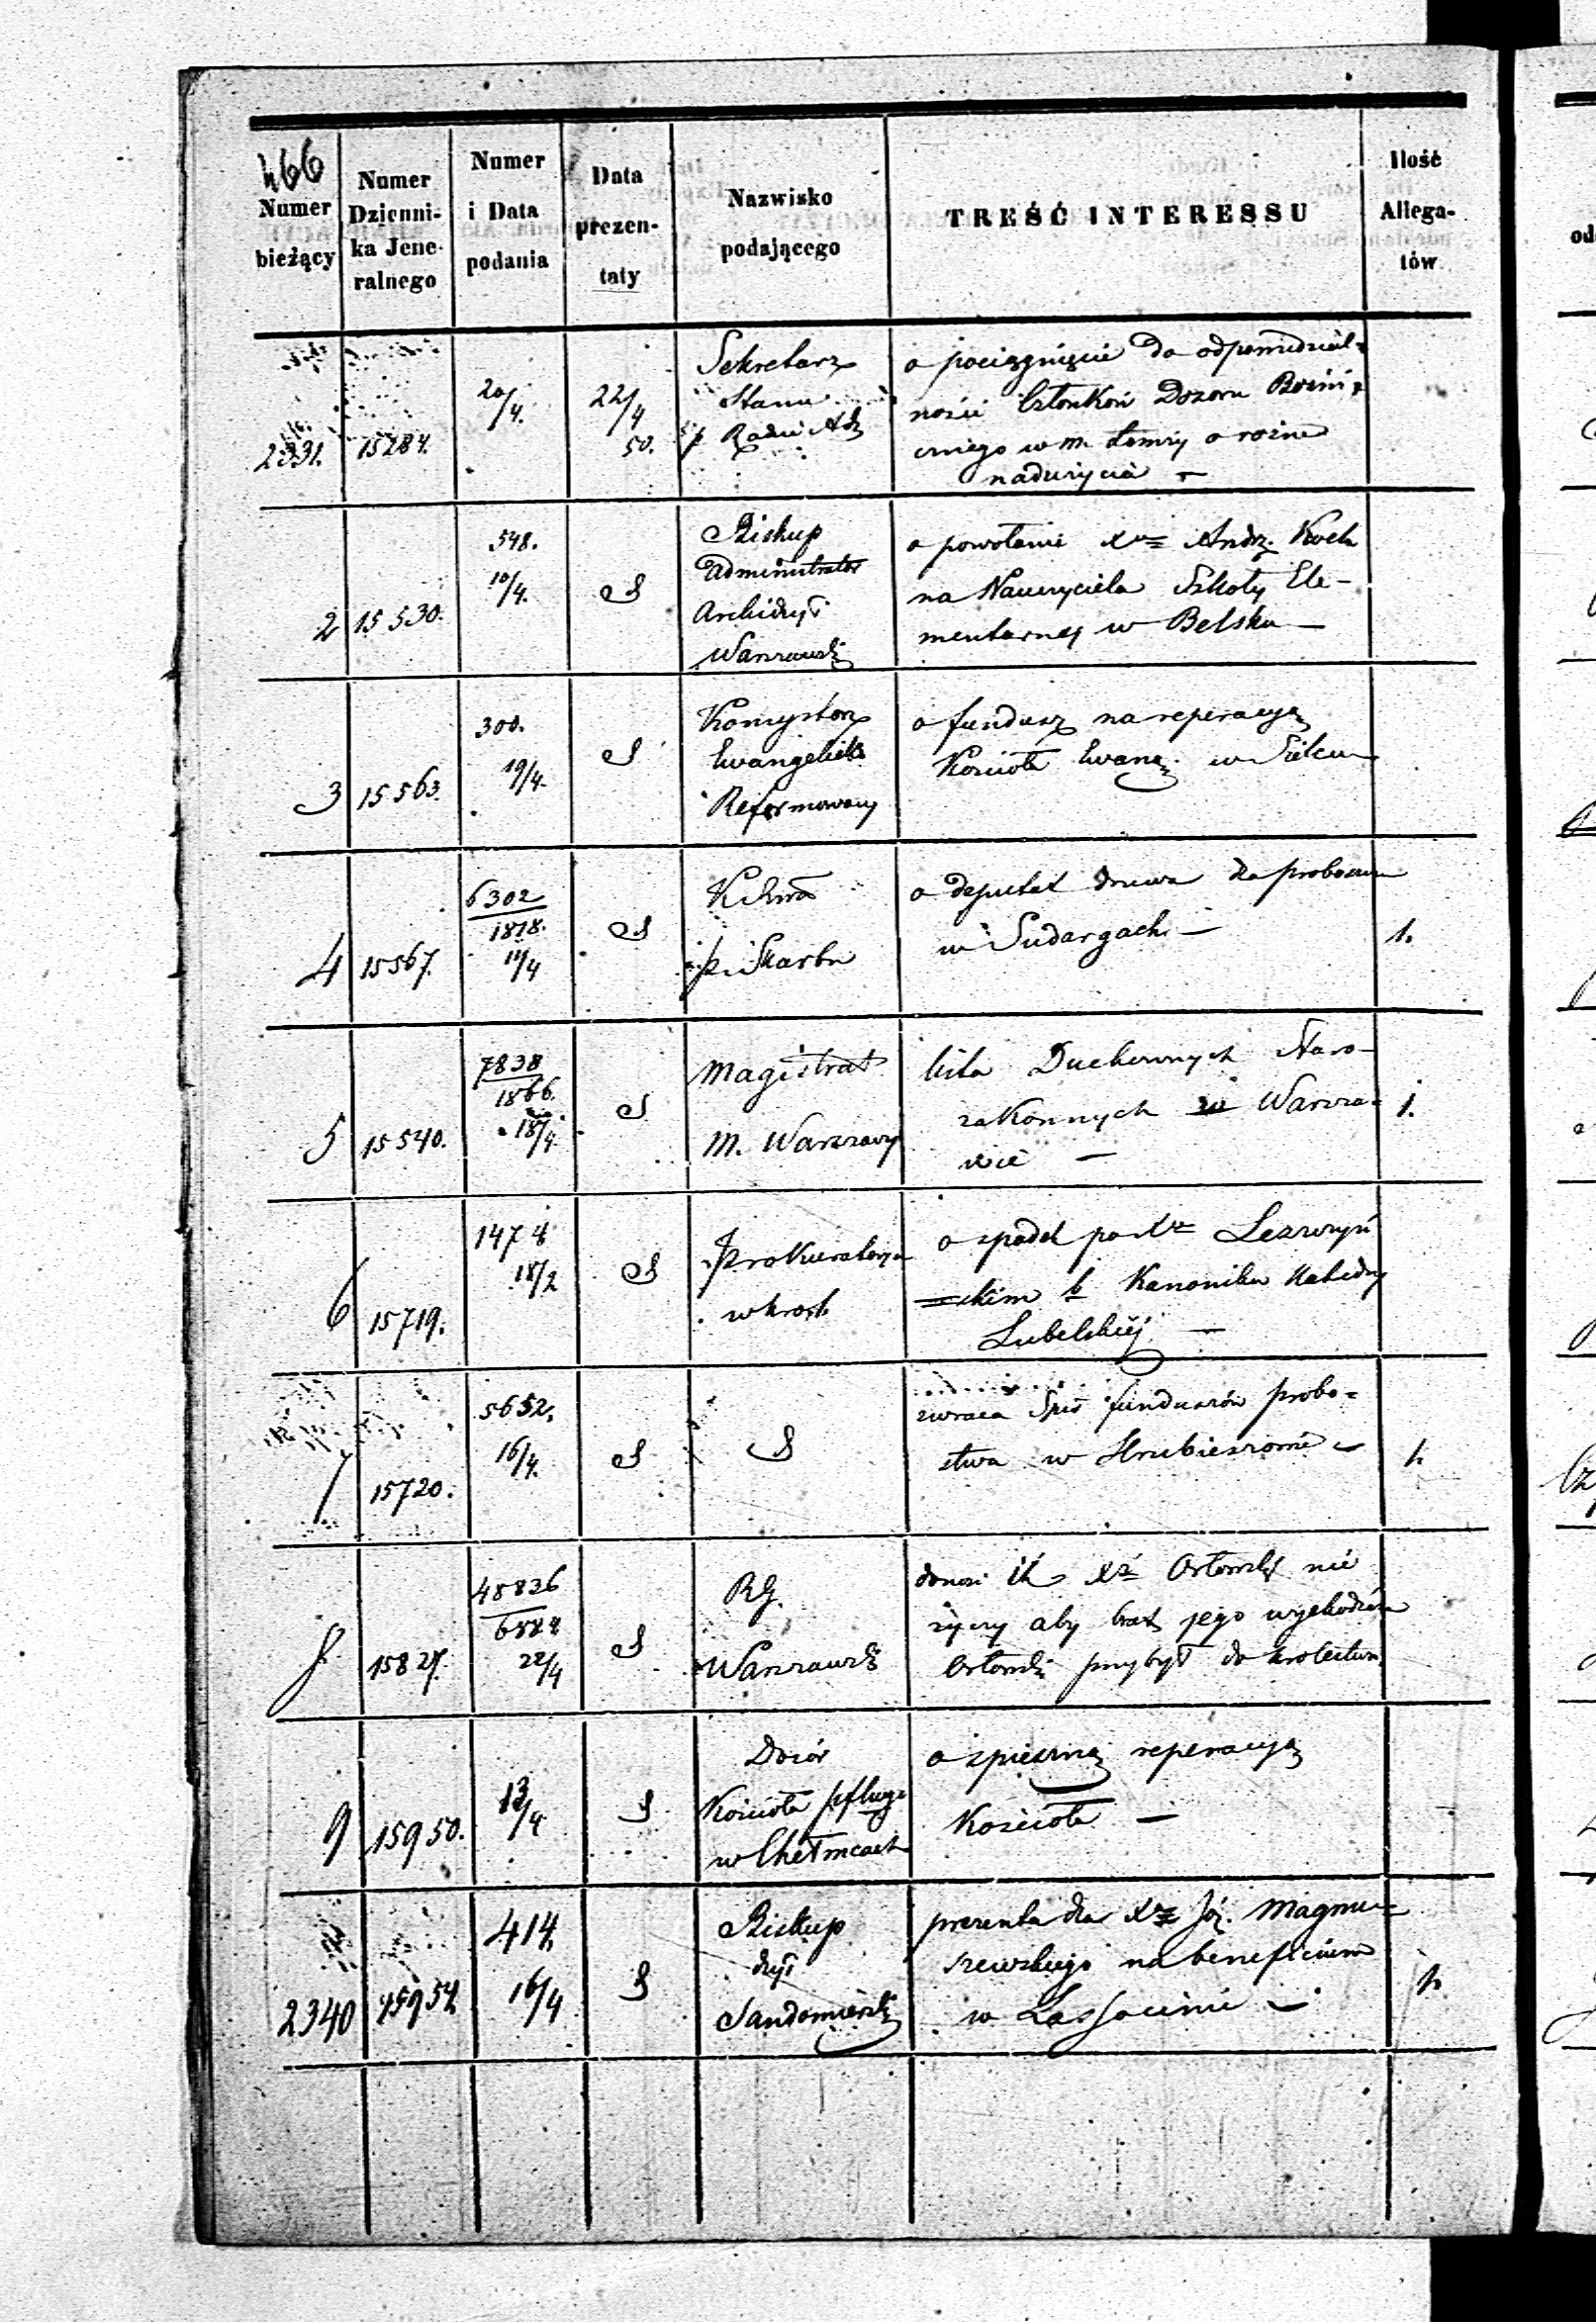 466
Numer bieżący
Numer Dzienni-ka Jene-ralnego
Numer i Data podania
Data prezen-taty
Nazwisko podającego
TREŚĆ INTERESSU
Ilość Allega-tów
2331. 15284. 20/4. 22/4 50.
Sekretarz
Stanu
p Radzie Adz
o pociągnięcie do odpowiedzial-
ności Członków Dozoru Bożni-
cznego w m. Łomży o rożne
nadużycia –
2 15530. 548. 10/4. S
Biskup
Administrator
Archidyi
Warszawski
o powołanie Xdza Andrz. Koch
na Nauczyciela Szkoły Ele-
mentarnej w Belsku –
3 15563. 300. 19/4. S
Konsystorz
Ewangelick
Reformowany
o fundusz na reperacyą
Kościoła Ewang. w Sielcu
4 15567. 6302/1878. 11/4 S
p. i Skarbu
o deputat drzewa dla proboszcza
w Sudargach – 1.
5 15540. 7838/1866. 18/4. S
Magistrat
m. Warszawy
lista Duchownych Staro-
zakonnych w Warsza-
wie – 1.
6 15719. 1474 18/2 S
Prokuratorya
w krol.
o spadek po Xdzu
skim b Kanoniku Katedry
Lubelskiej –
7 15720. 5652. 16/4. S S
zwraca Spis funduszów probo-
stwa w Hrubieszowie – 1.
8 15827. 48826 22/4 S
RG.
Warszawski
donosi iż Xdz Orłowski nie
życzy aby brat jego wychodźca
Orłowski przybył do krolestwa.
9 15950. 13/4 S
Dozór
Kościoła
w Chełmcach
o spieszną reperacyą
Kościoła –
2340 15954. 414. 16/4 S
Biskup
dyi
Sandomierski
prezenta dla Xdza Józ. Magnu-
szewskiego na beneficium
w Lassocinie – 1.